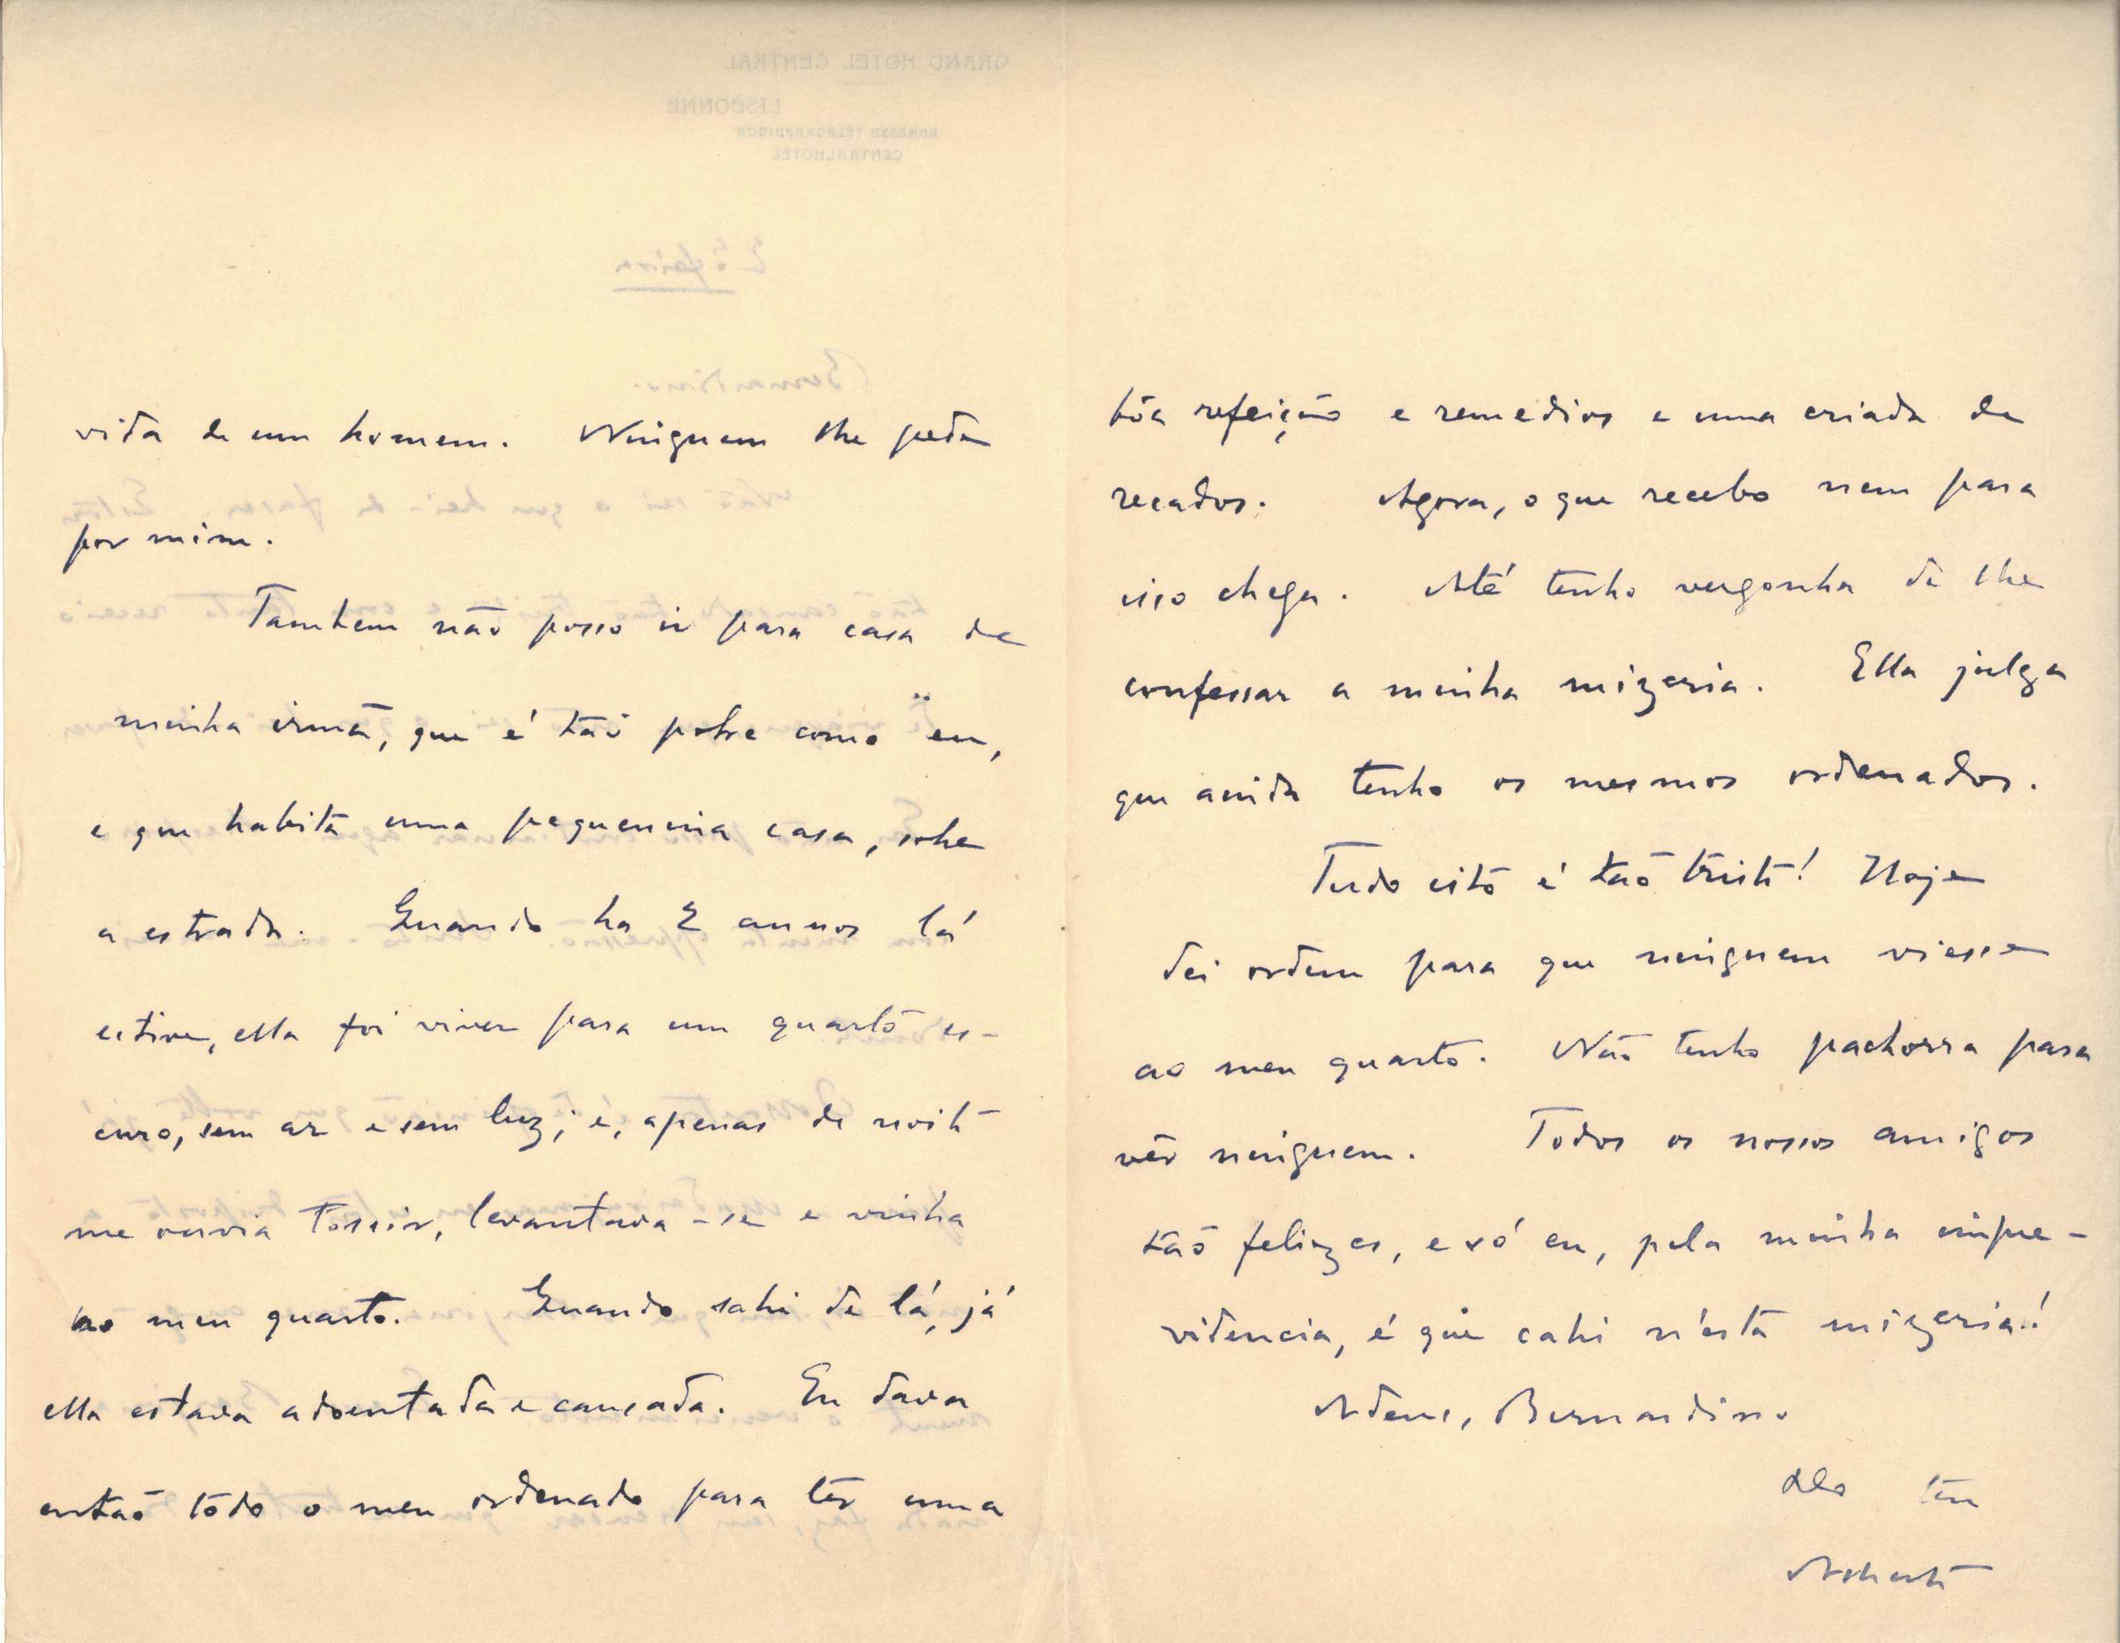 vida de um homem. Ninguem lhe peça
por mim.
Tambem não posso ir para casa de
minha irmã, que é tão pobre como eu,
e que habita uma pequenina casa, sobre
a estrada. Quando ha 2 annos lá
estive, ella foi viver para um quarto es-
curo, sem ar e sem luz; e, apenas de noite
me ouvia tossir, levantava-se e vinha
ao meu quarto. Quando sahi de lá, já
ella estava adoentada e cansada. Eu dava
então tôdo o meu ordenado para têr uma
bôa refeição e remedios e uma criada de
recados. Agora, o que recebo nem para
isso chega. Até tenho vergonha de lhe
confessar a minha mizeria. Ella julga
que ainda tenho os mesmos ordenados.
Tudo isto é tão triste! Hoje
dei ordem para que ninguem viesse
ao meu quarto. Não tenho pachorra para
vêr ninguem. Todos os nossos amigos
tão felizes, e só eu, pela minha impre-
videncia, é que cahi n'esta mizeria!
Adeus, Bernardino
Do teu
Alberto